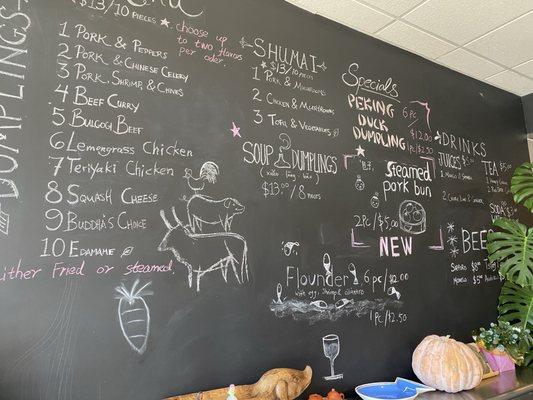 DUMPLINGS
$13/10 PIECES
choose up
to two flavors
per order
1 PORK & PEPPERS
2 PORK & CHINESE CELERY
3 PORK, SHRIMP, & CHIVES
4 BEEF CURRY
5 BULGOGI BEEF
6 LEMONGRASS CHICKEN
7 TERIYAKI CHICKEN
8 SQUASH CHEESE
9 BUDDHA'S CHOICE
10 EDAMAME
either Fried or steamed
SHUMAI
$13/10
1 PORK & MUSHROOMS
2 CHICKEN & MUSHROOMS
3 TOFU & VEGETABLES
SOUP DUMPLINGS
$13/8 PIECES
Specials
PEKING
DUCK
DUMPLING
6 PC
$12.00
1PC/$2.50
steamed
pork bun
2 PC/$5.00
NEW
FLOUNDER 6 PC/$12.00
with egg, shrimp & cilantro
1 PC/$2.50
DRINKS
JUICES
TEA
SODA
BEER